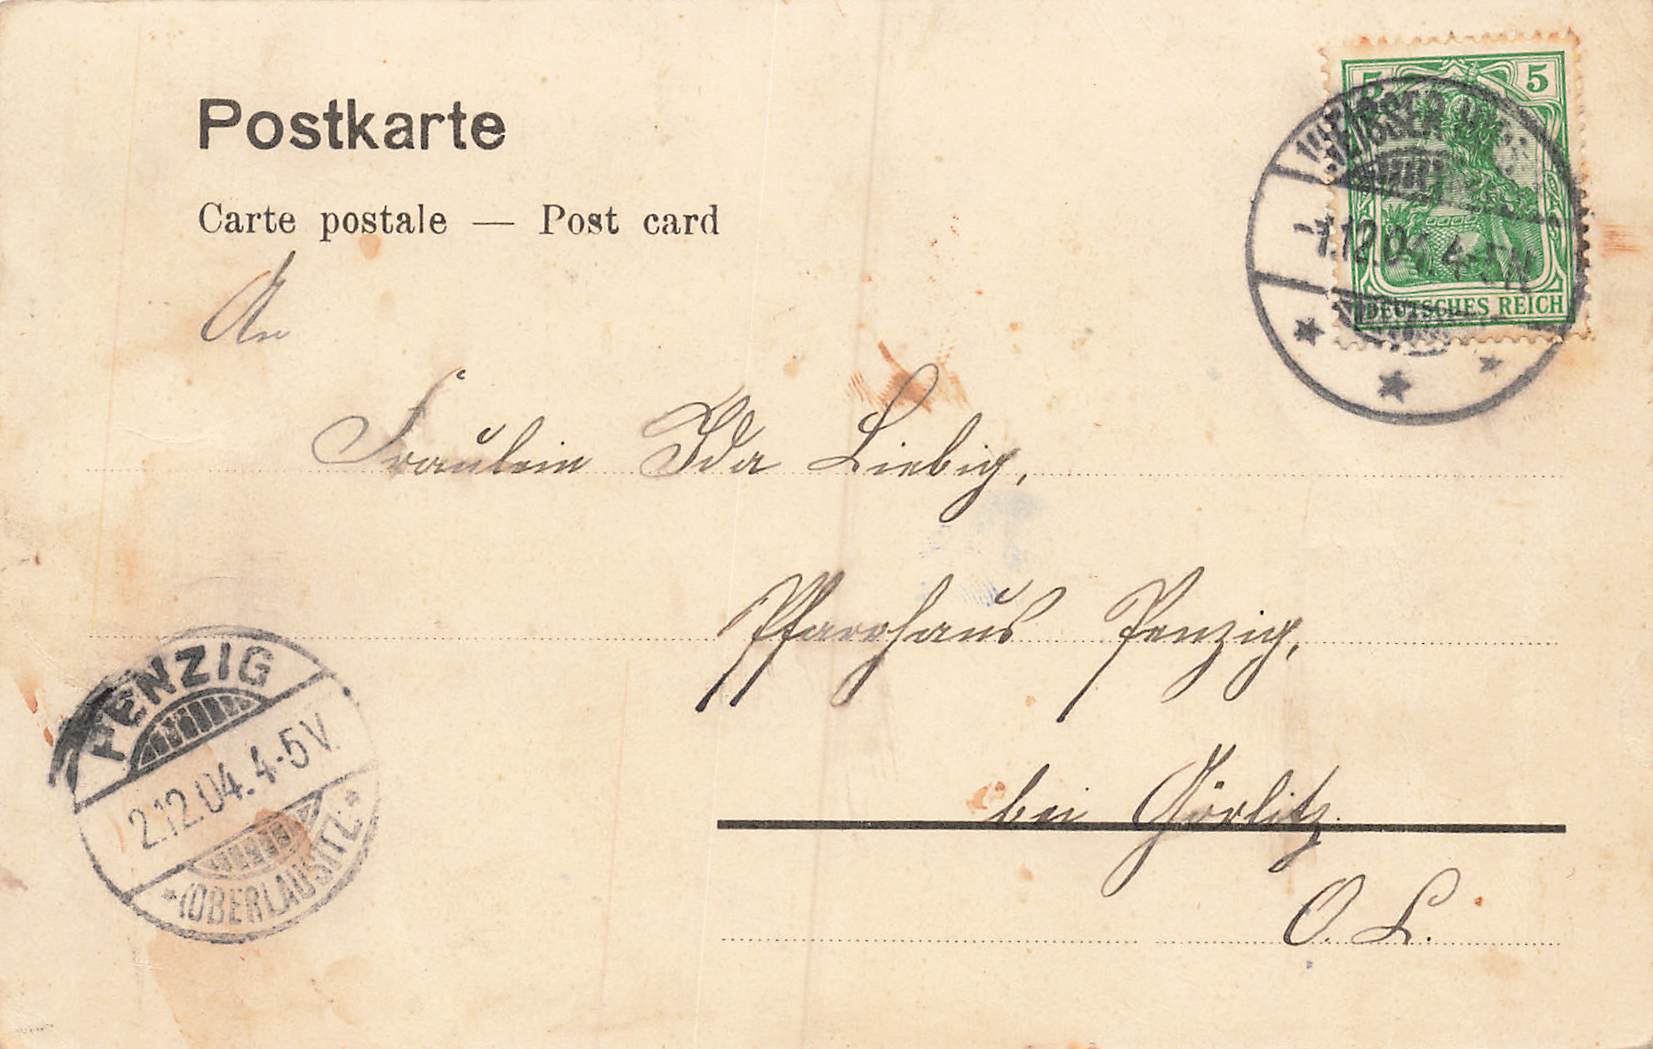 Postkarte
Carte postale — Post card
5 5
WEISSER
1.12.04. 4-5N
DEUTSCHES REICH
An
Fräulein Ida Liebig,
Pfarrhaus Penzig,
bei Görlitz
O. L.
PENZIG
2.12.04. 4-5V.
*(OBERLAUSITZ)*